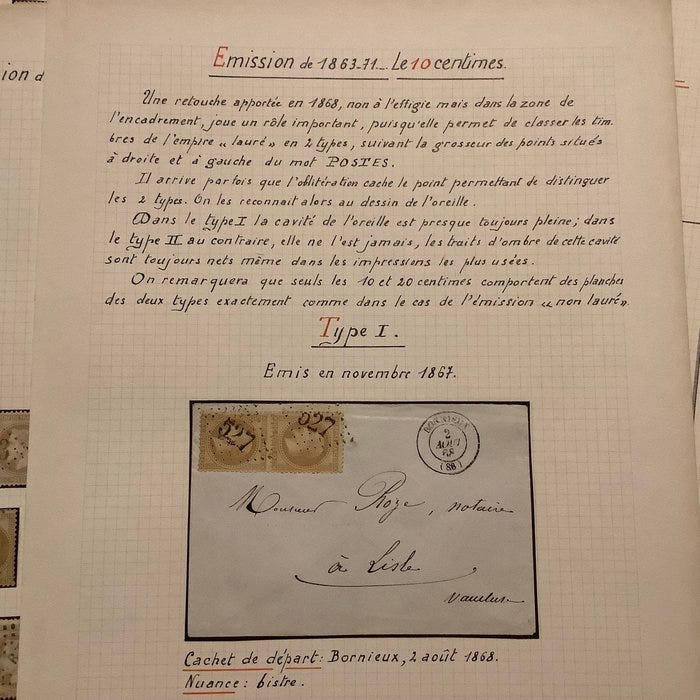 ion d
Emission de 1863-71_ Le 10 centimes.
Une retouche apportée en 1868, non à l'effigie mais dans la zone de
l'encadrement, joue un rôle important, puisqu'elle permet de classer les tim_
bres de l'empire « lauré » en 2 types, suivant la grosseur des points situés
à droite et à gauche du mot POSTES.
Il arrive parfois que l'oblitération cache le point permettant de distinguer
les 2 types. On les reconnait alors au dessin de l'oreille.
Dans le type I la cavité de l'oreille est presque toujours pleine; dans
le type II au contraire, elle ne l'est jamais, les traits d'ombre de cette cavité
sont toujours nets même dans les impressions les plus usées.
On remarquera que seuls les 10 et 20 centimes comportent des planches
des deux types exactement comme dans le cas de l'émission « non lauré ».
Type I.
Emis en novembre 1867.
527 527
2
AOUT
68
(86)
Monsieur Roze, notaire
à Lisle
Vaucluse
Cachet de départ: Bornieux, 2 août 1868.
Nuance: bistre.